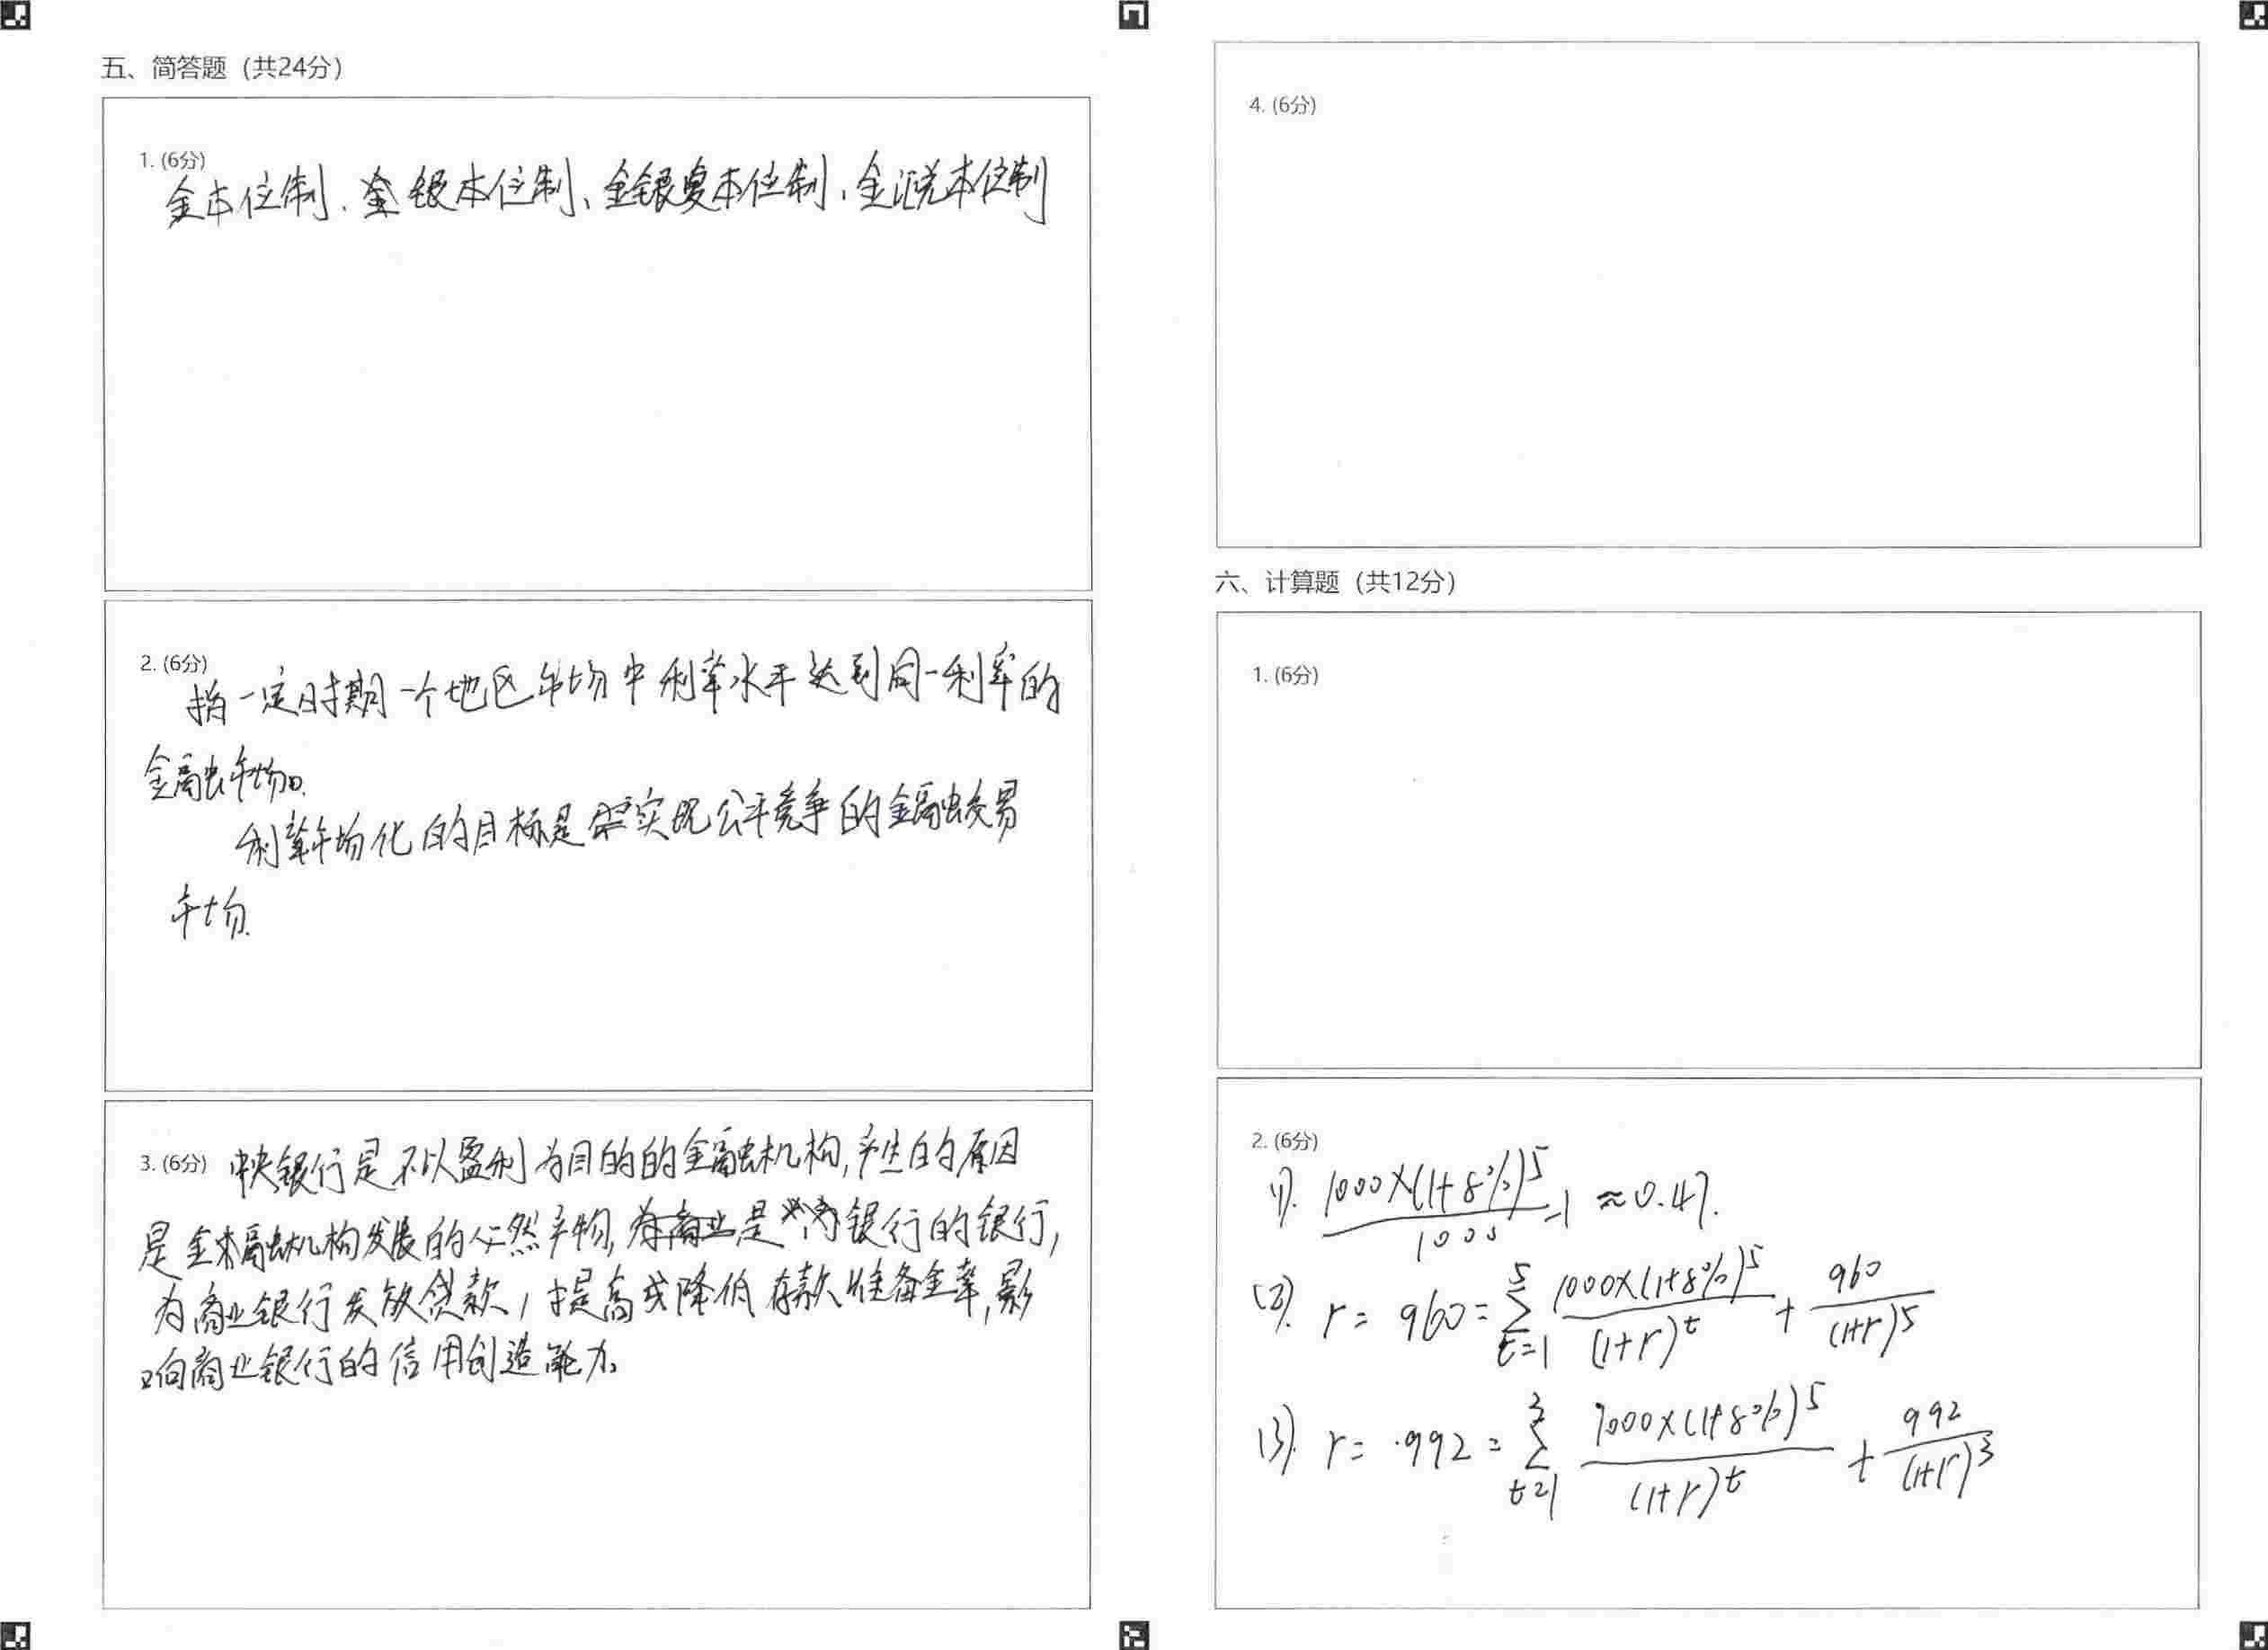 五、简答题（共24分）
1. (6分)
金本位制、银本位制、金银复本位制、金汇兑本位制
2. (6分)
指一定时期一个地区市场中利率水平达到同一利率的
金融市场。
利率市场化的目标是实现公平竞争的金融交易
市场.
3. (6分) 中央银行是不以盈利为目的的金融机构,产生的原因
是金融机构发展的必然产物,是银行的银行,
为商业银行发放贷款,提高或降低存款准备金率,影
响商业银行的信用创造能力。
4. (6分)
六、计算题（共12分）
1. (6分)
2. (6分)
(1). 1000×(1+8%)^5/1000 -1 ≈0.47.
(2). r= 960= ∑_{t=1}^{5} 1000×(1+8%)^5/(1+r)^t + 960/(1+r)^5
(3). r= 992= ∑_{t=1}^{3} 1000×(1+8%)^5/(1+r)^t + 992/(1+r)^3